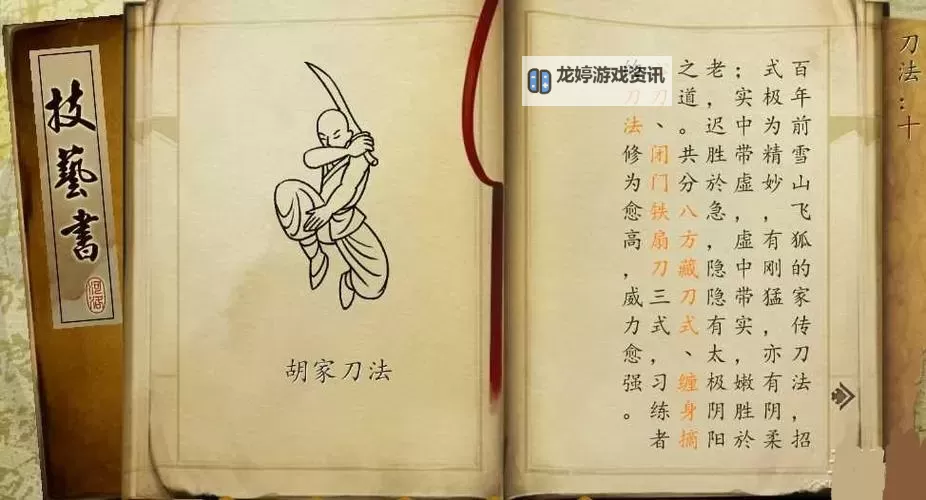 技藝書
胡家刀法
龙婷游戏资讯
刀法:十
百年前雪山飞狐的家传刀法,招
式极为精妙,有刚猛,亦有阴柔
;实中带虚,虚中带实,嫩胜於
老,迟胜於急,隐隐有太极阴阳
之道。共分八方藏刀式、缠身摘
刀、闭门铁扇刀三式,习练者
刀法修为愈高,威力愈强。